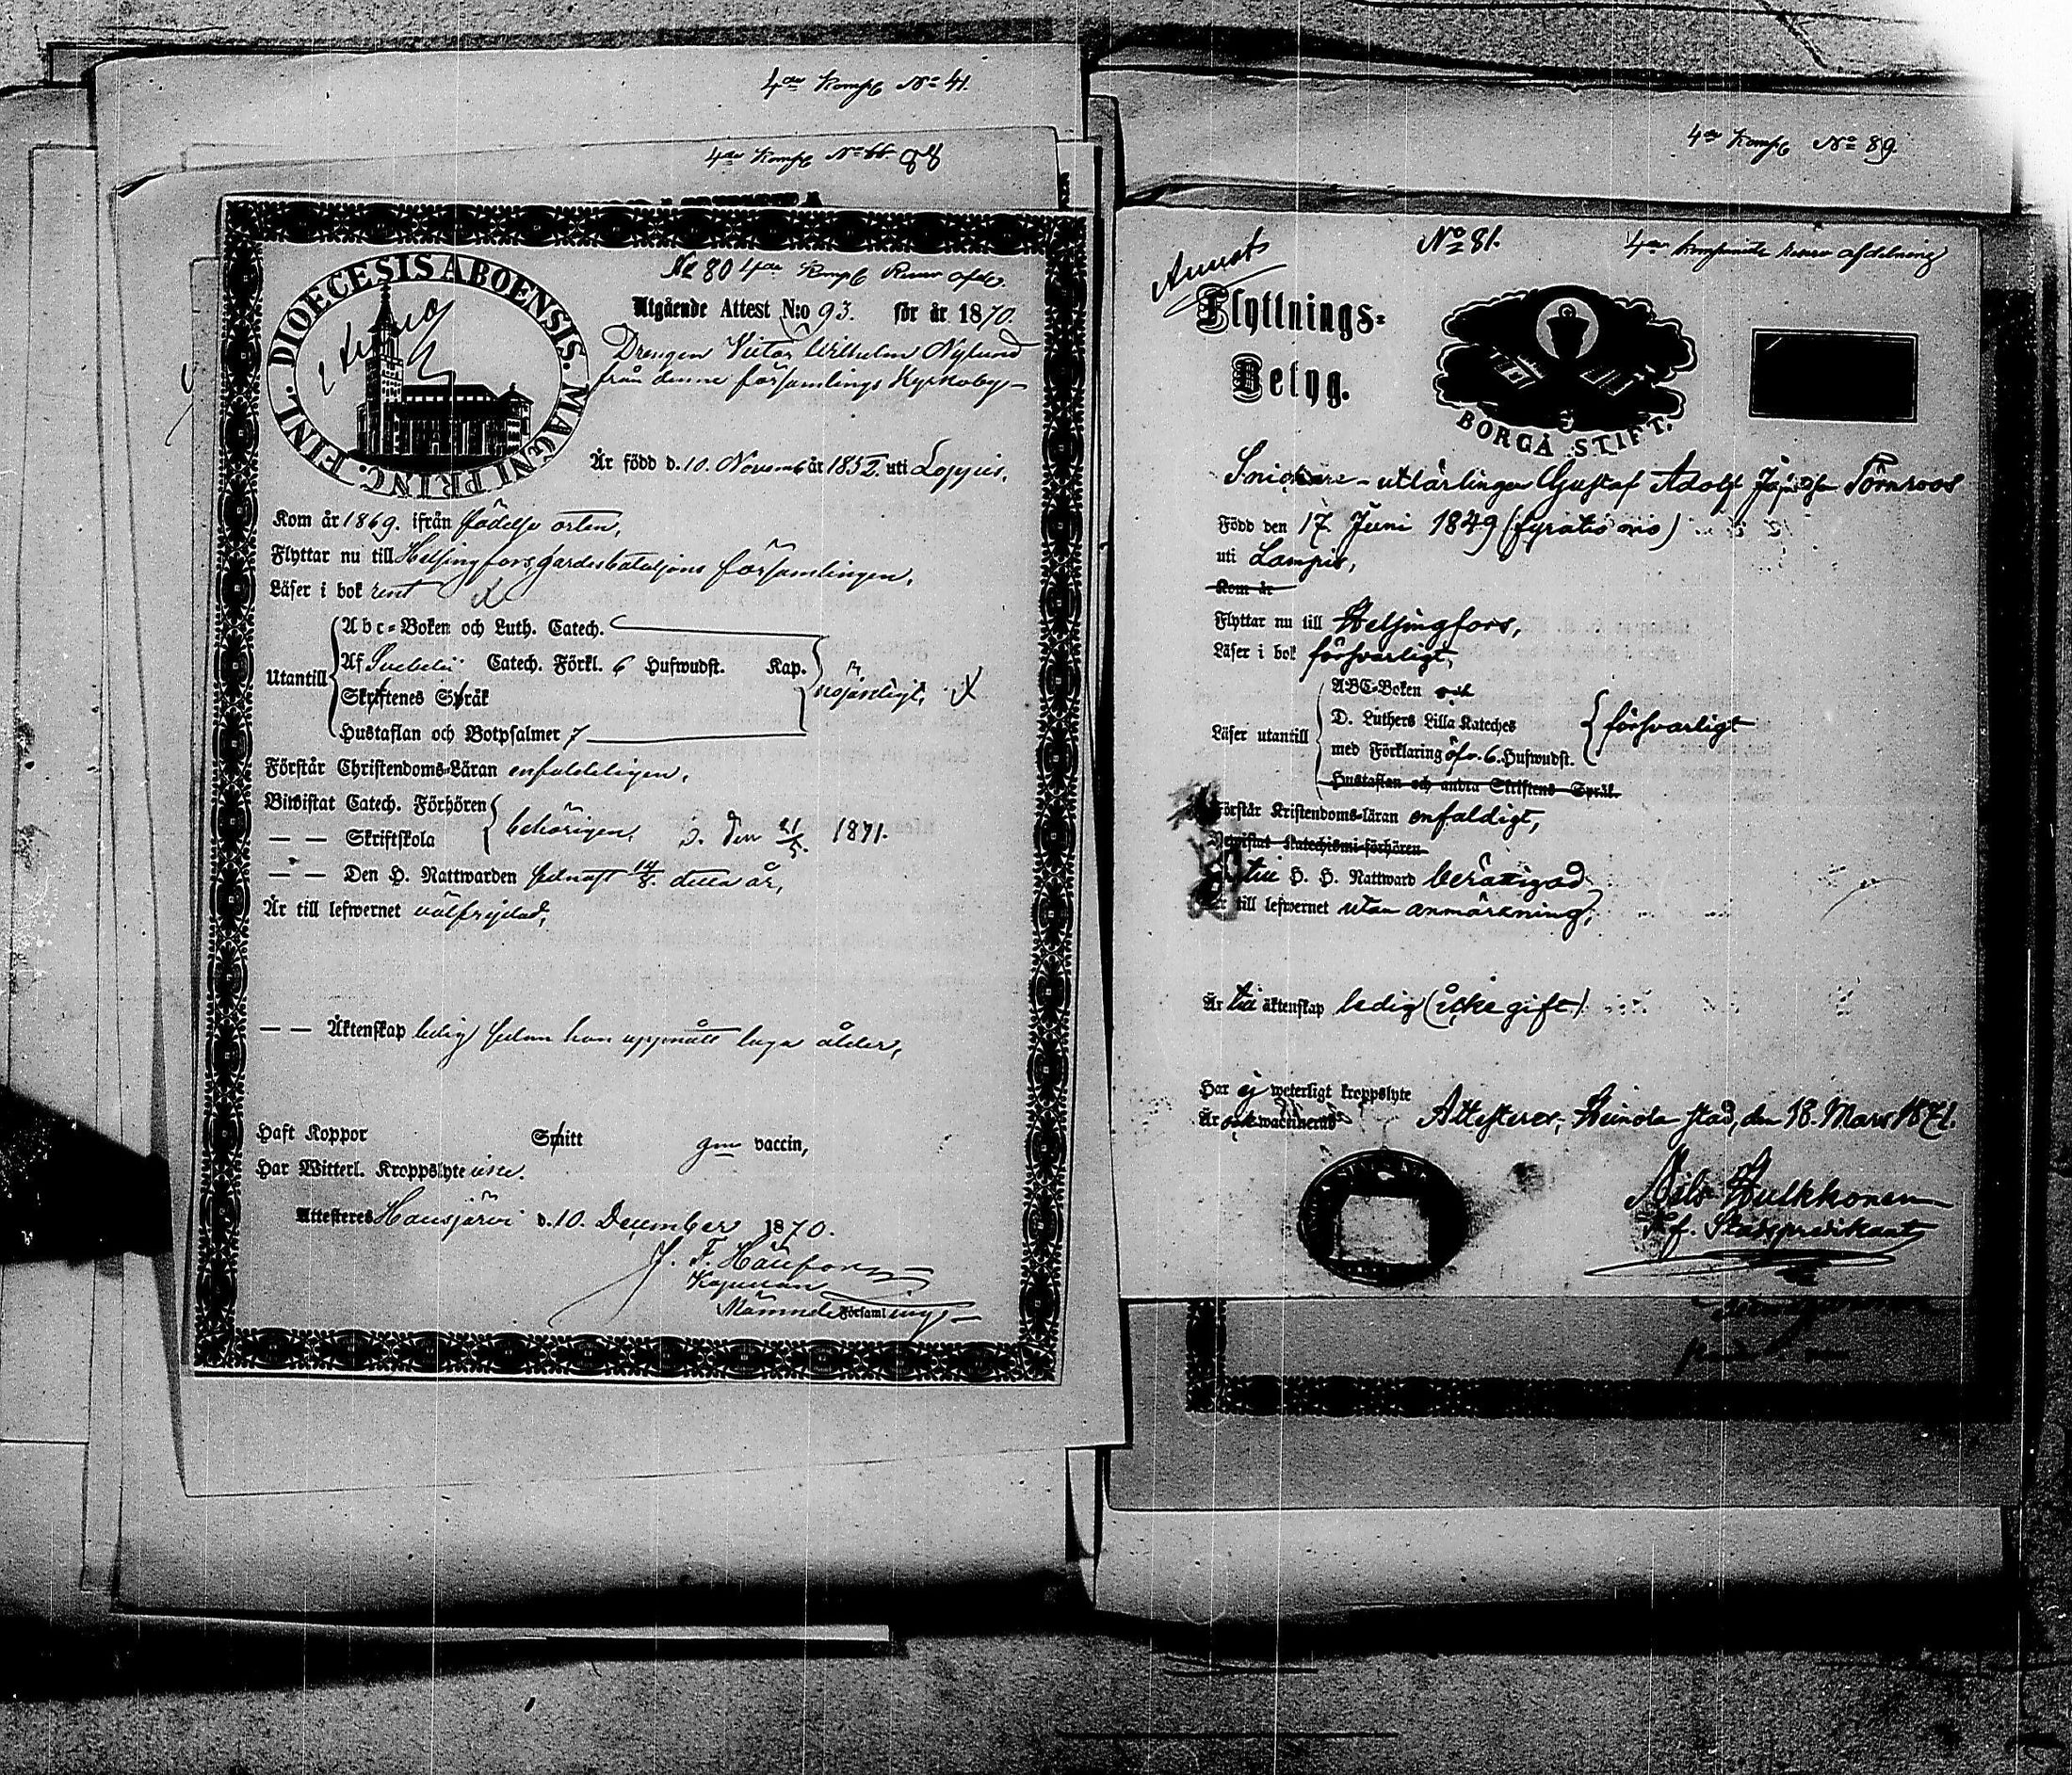 4de Komp. No 41.
4de Komp. No 66. 98
No 80 4de Komp. Reserv afd.
DIOECESIS ABOENSIS. MAGNI PRINC. FINL.
Utgående Attest N:o 93. för år 1870.
Drengen Victor Wilhelm Nylund
från denne församlings Kyrkoby
Är född d. 10. Novemb år 1852. uti Loppis,
Kom år 1869. ifrån födelse orten,
Flyttar nu till Helsingfors, Gardesbataljons församlingen,
Läser i bok rent
Abc-Boken och Luth. Catech.
Utantill Af Svebelii Catech. Förkl. 6 Hufwudst. Kap. nöjaktigt,
Skriftenes Språk
Hustaflan och Botpsalmer 7
Förstår Christendoms-Läran enfaldeligen,
Biwistat Catech. Förhören
behörigen, d. den 21/5. 1871.
— — Skriftskola
— — Den H. Nattwarden sednast 14/8. detta år,
Är till lefwernet välfrejdad,
— — Äktenskap ledig sedan han uppnått laga ålder,
Haft Koppor Smitt gm vaccin,
Har Witterl. Kroppslyte icke.
Attesteres Hausjärvi d. 10. December 1870.
J. F.
Kapellan
Församling
4de Komp. No 89.
No 81. 4de kompanits reserv afdelning
Flyttnings-
Betyg.
BORGÅ STIFT.
Snickare-utlärlingen Gustaf Adolf Törnroos
Född den 17. Juni 1849 (fyratio nio)
uti Lampis,
Kom år
Flyttar nu till Helsingfors,
Läser i bok försvarligt,
ABC-Boken och
Läser utantill D. Luthers Lilla Kateches försvarligt
med Förklaring öfv. 6. Hufwudst.
Hustaflan och andra Skriftens Språk.
Förstår Kristendoms-läran enfaldigt,
Bewistat Katechismi-förhören
till H. H. Nattward berättigad
Är till lefwernet utan anmärkning,
Är till äktenskap ledig (icke gift)
Har ej weterligt kroppslyte
Är och waccinerad
Attesterar, Heinola stad, den 18. Mars 1871.
Nils Hulkkonen
v. f. Stadspredikant